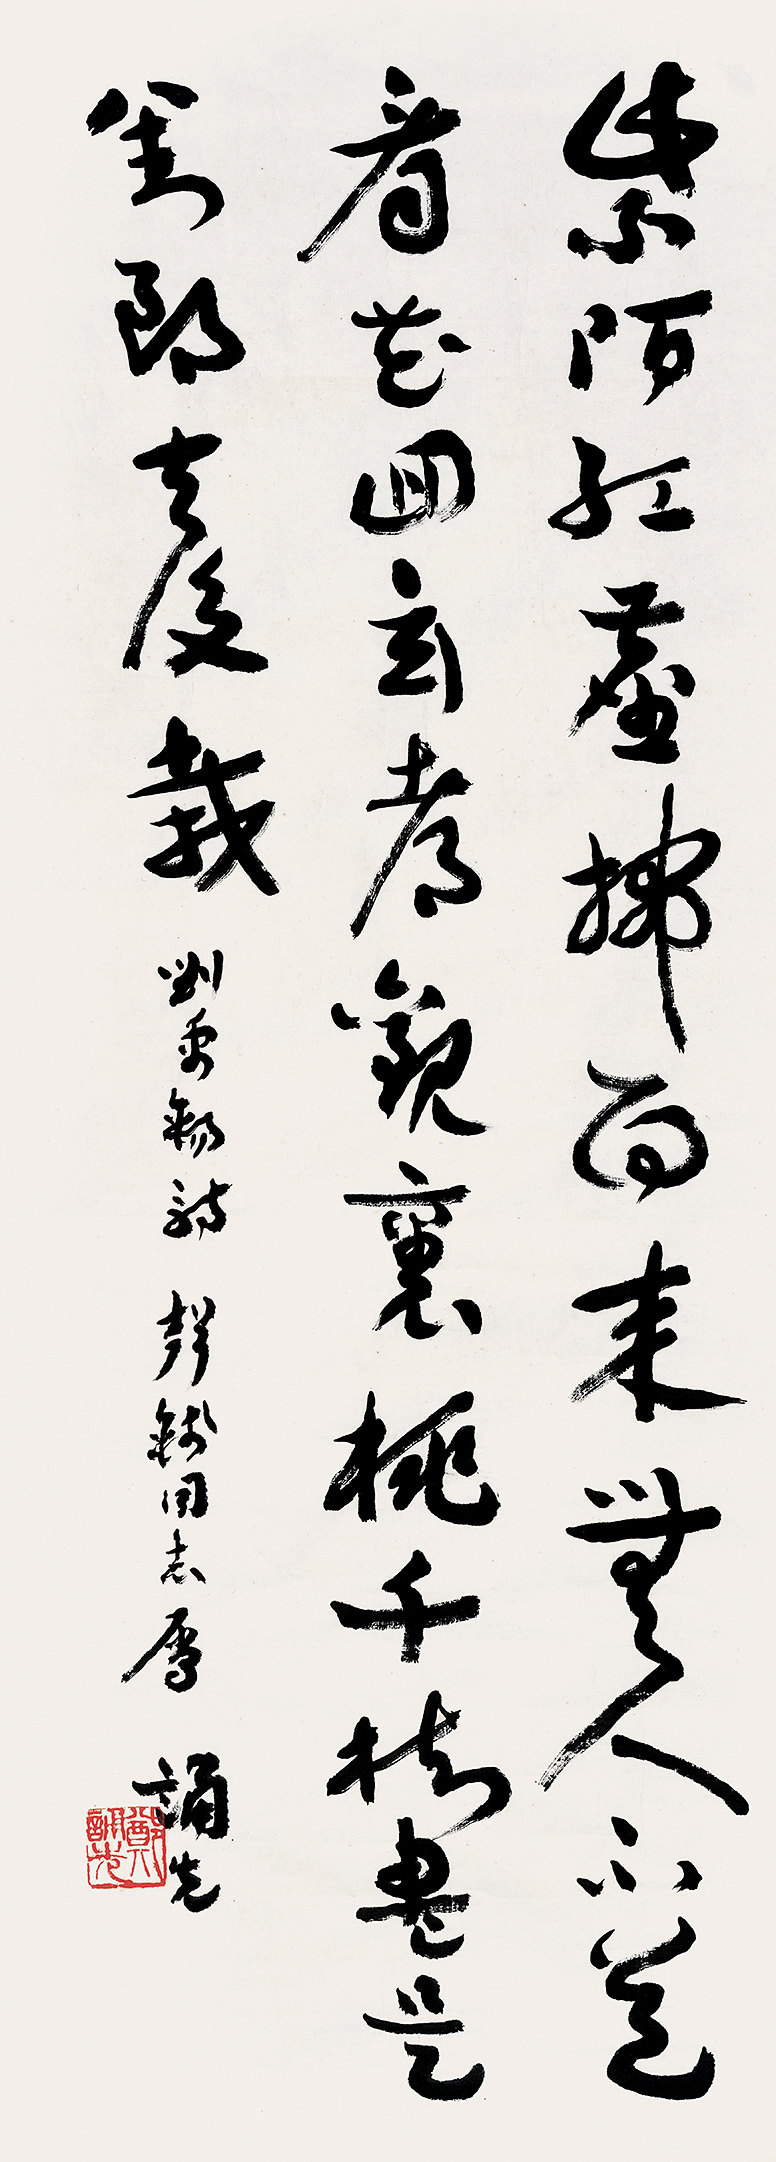 紫陌紅塵拂面来無人不道
看花迴玄都觀裏桃千樹盡是
劉郎去後栽 劉禹錫詩 同志屬 誦先
鄭誦先